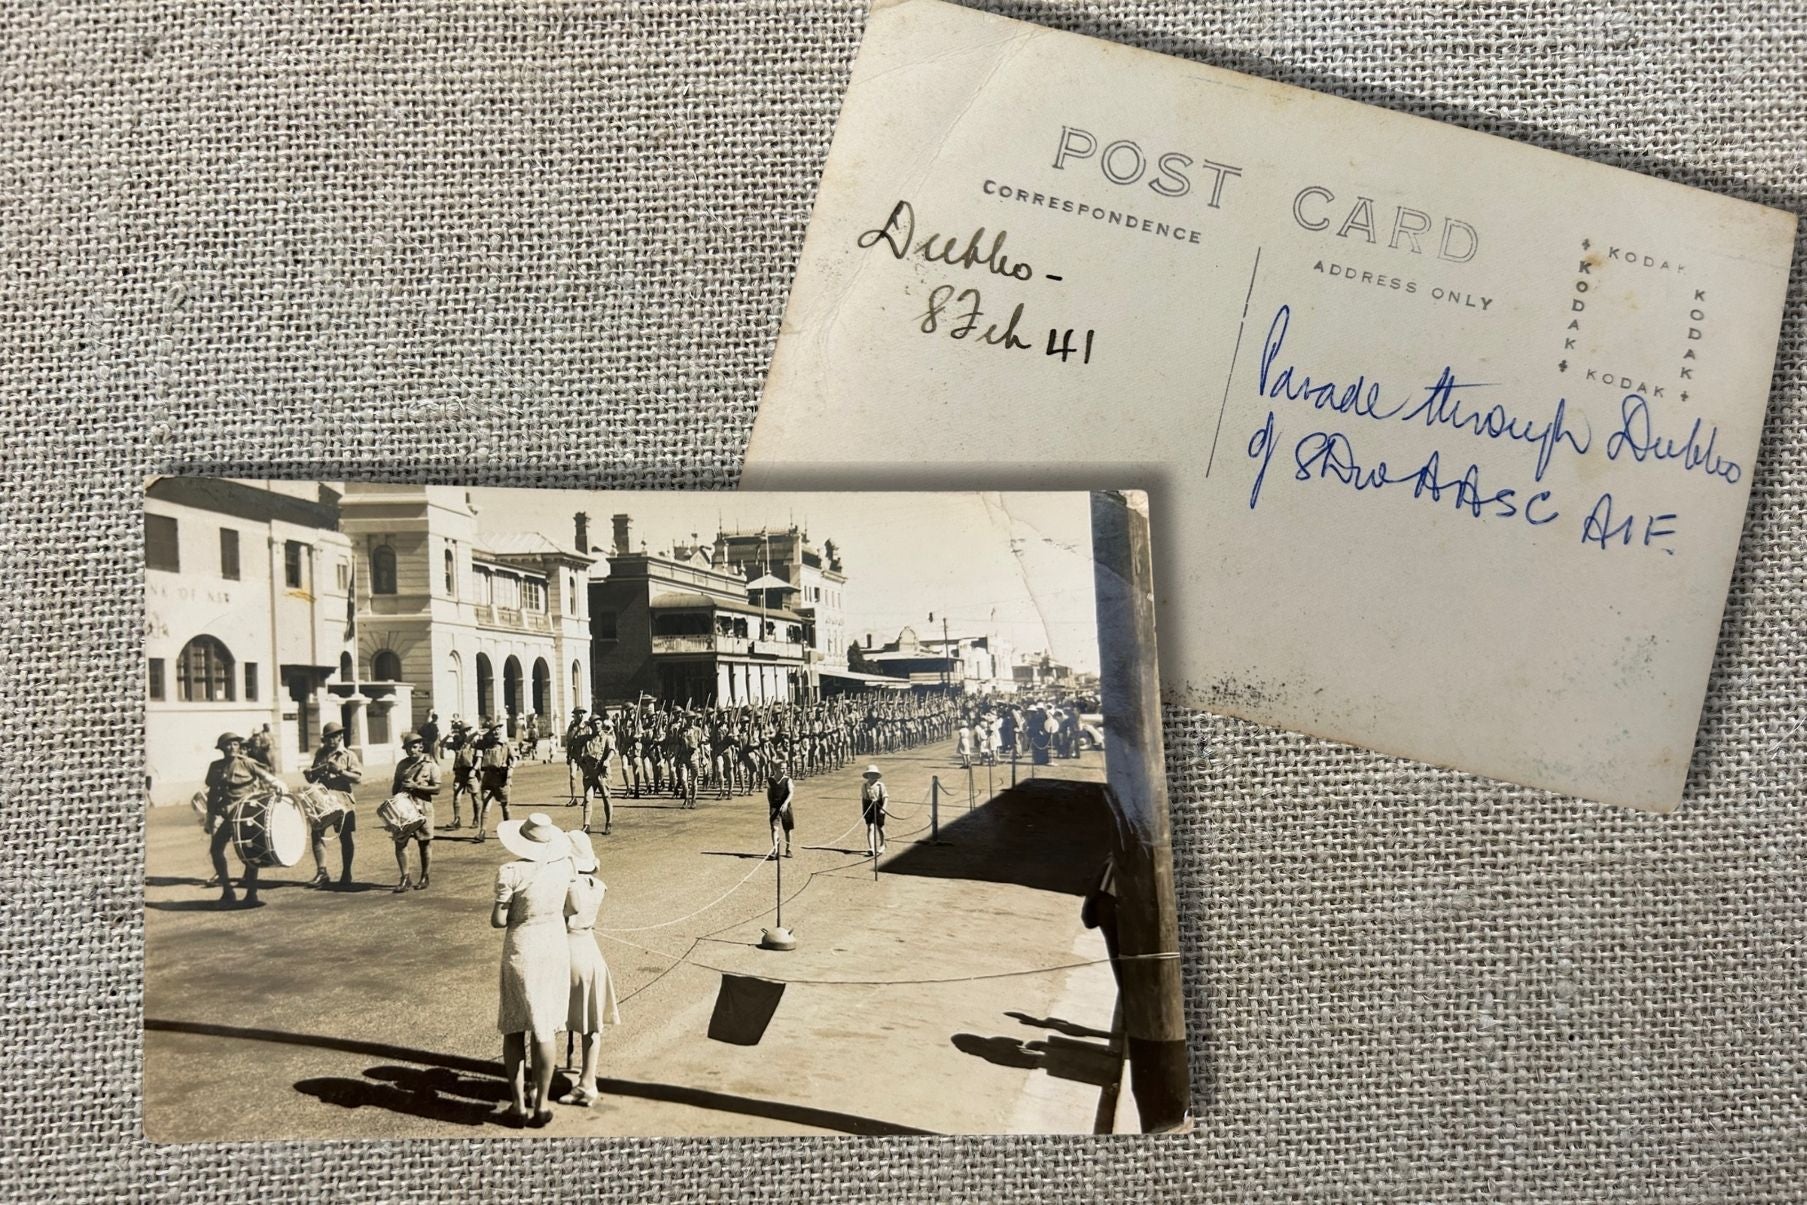 POST CARD
CORRESPONDENCE
ADDRESS ONLY
KODAK
KODAK
KODAK
KODAK
Dubbo -
8 Feb 41
Parade through Dubbo
of 8Div AASC AIF.
OF NSW